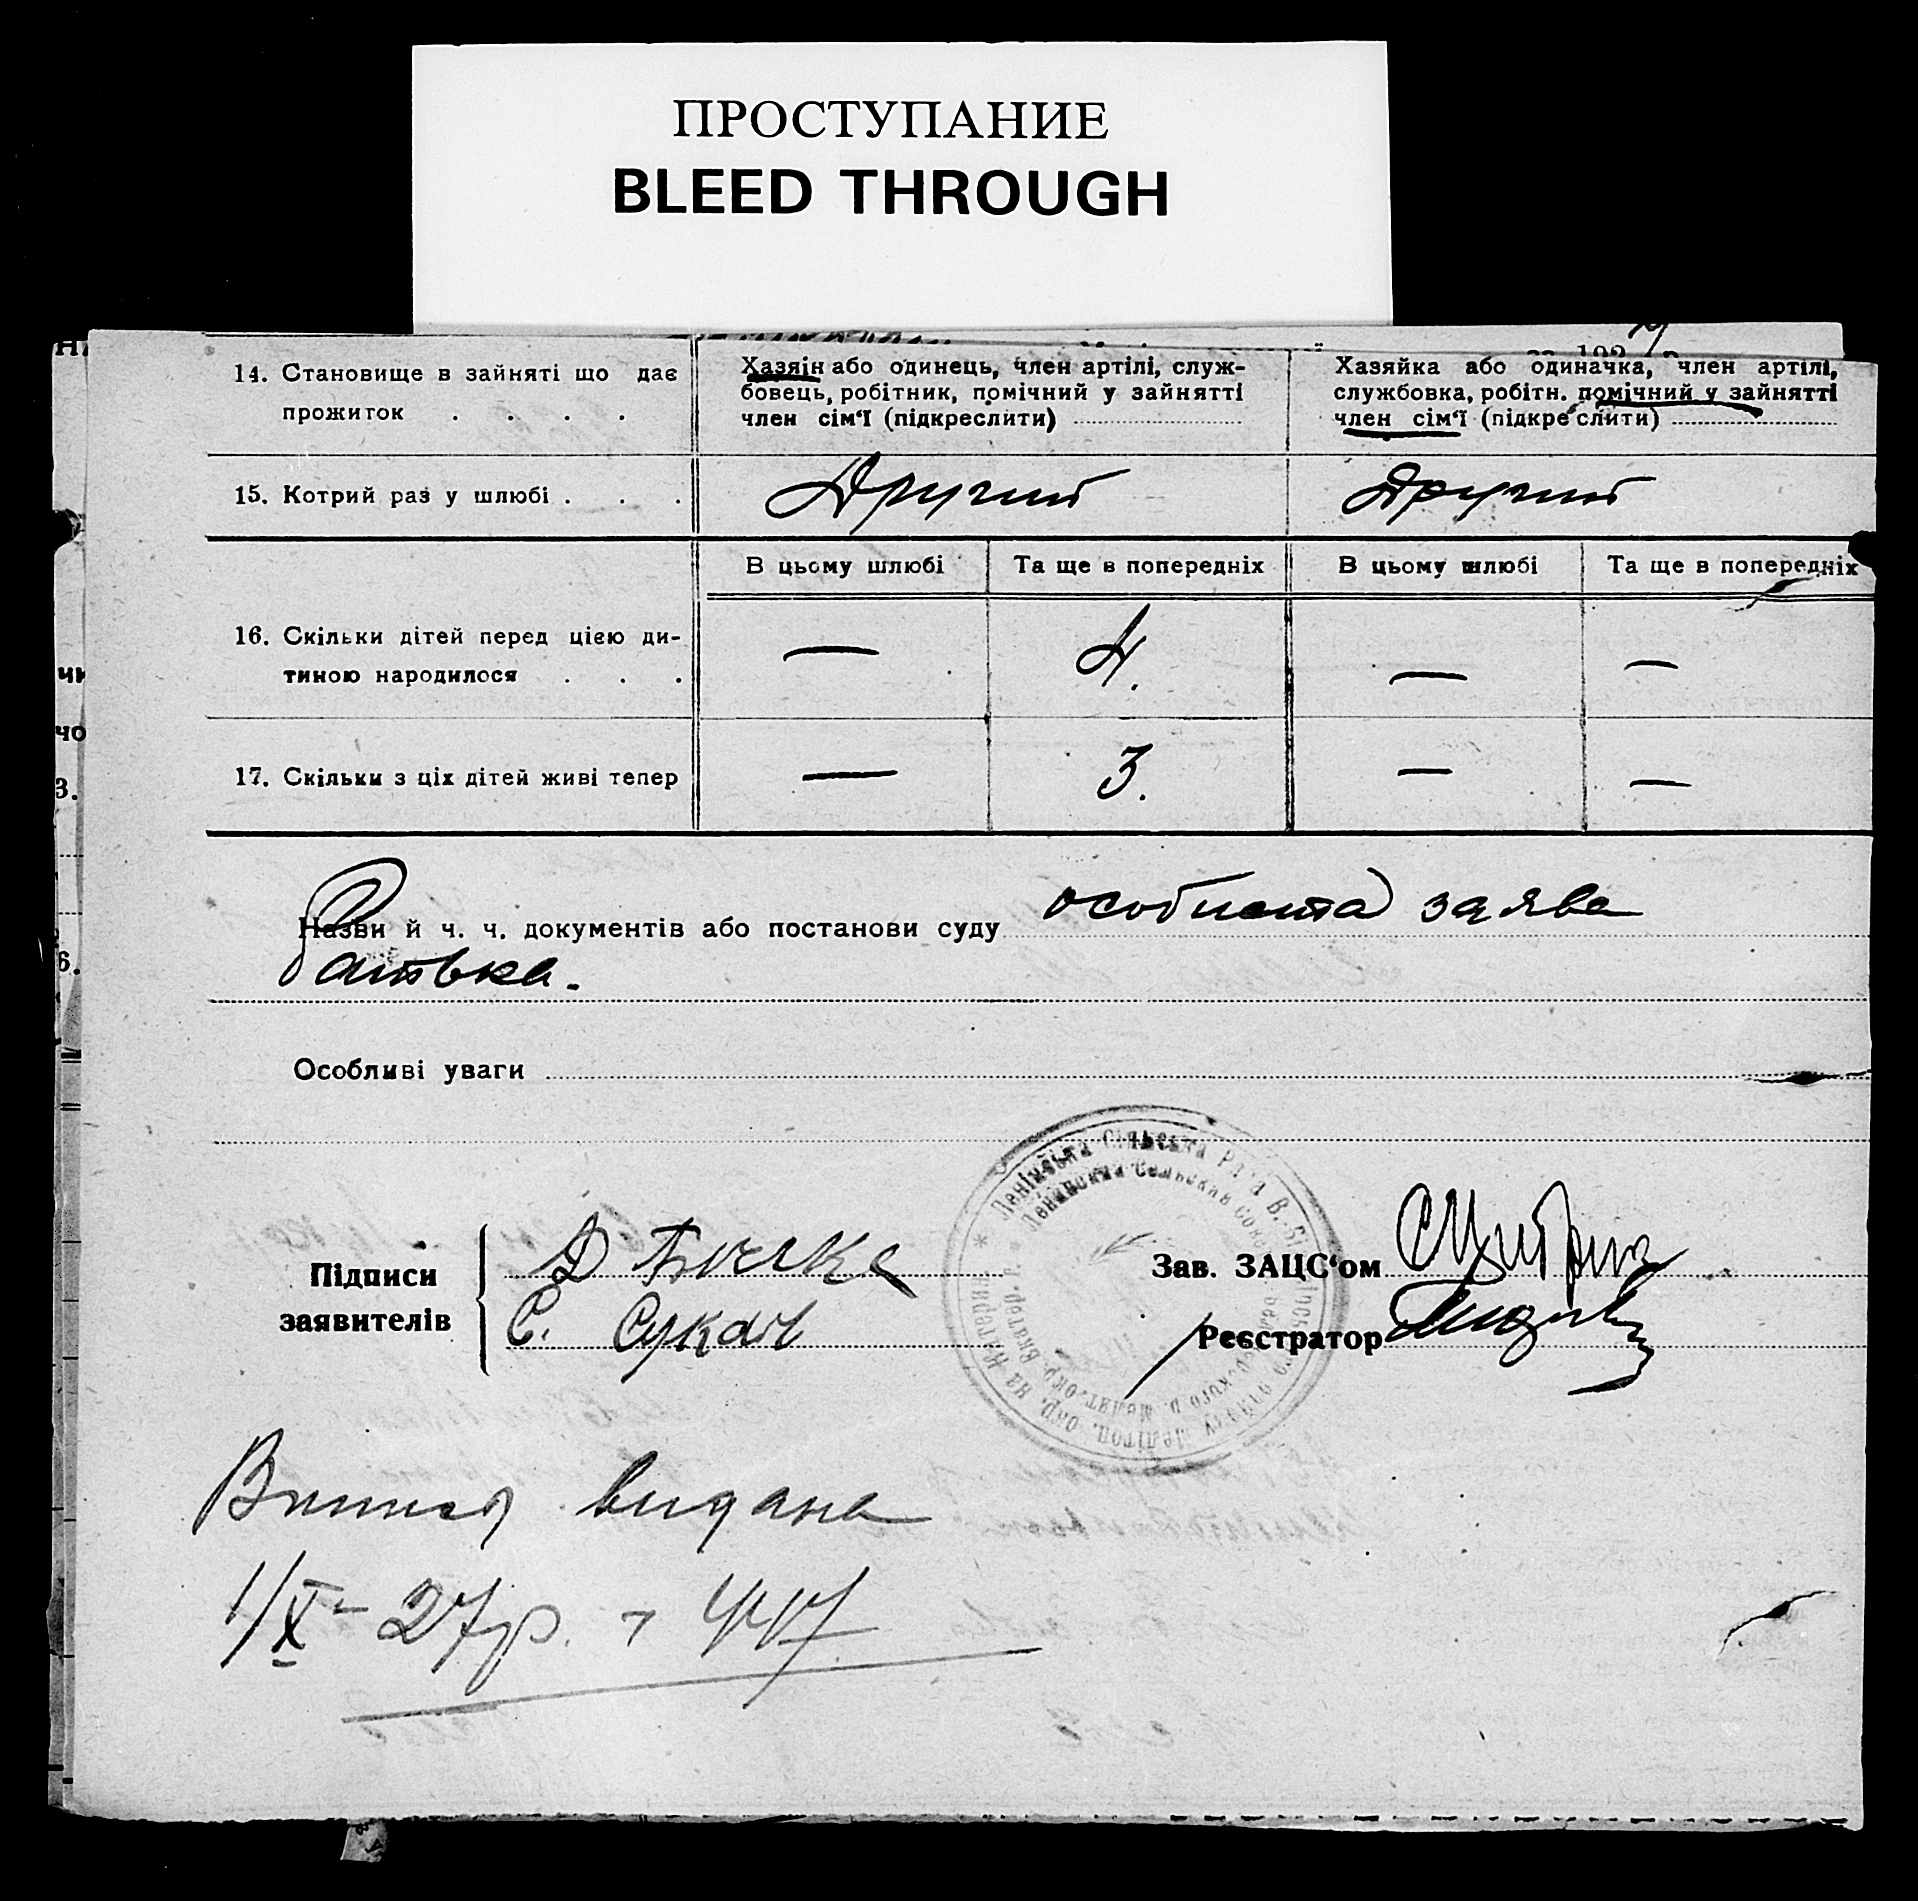 ПРОСТУПАНИЕ
BLEED THROUGH
14. Становище в зайняті що дає
прожиток . . . .
Хазяін або одинець, член артілі, служ-
бовець, робітник, помічний у зайнятті
член сім'ї (підкреслити)
Хазяйка або одиначка, член артілі,
службовка, робітн. помічний у зайнятті
член сім'ї (підкреслити)
15. Котрий раз у шлюбі . . .
Другий
Другий
В цьому шлюбі
Та ще в попередніх
В цьому шлюбі
Та ще в попередніх
16. Скільки дітей перед цією ди-
тиною народилося . . .
—
4.
—
—
17. Скільки з ціх дітей живі тепер
—
3.
—
—
Назви й ч. ч. документів або постанови суду особиста заява
батька.
Особливі уваги
Ленінська Сільська Рада
Підписи
заявителів
Д
С.
Зав. ЗАЦС'ом
Реєстратор
видана
1/X - 27 р.